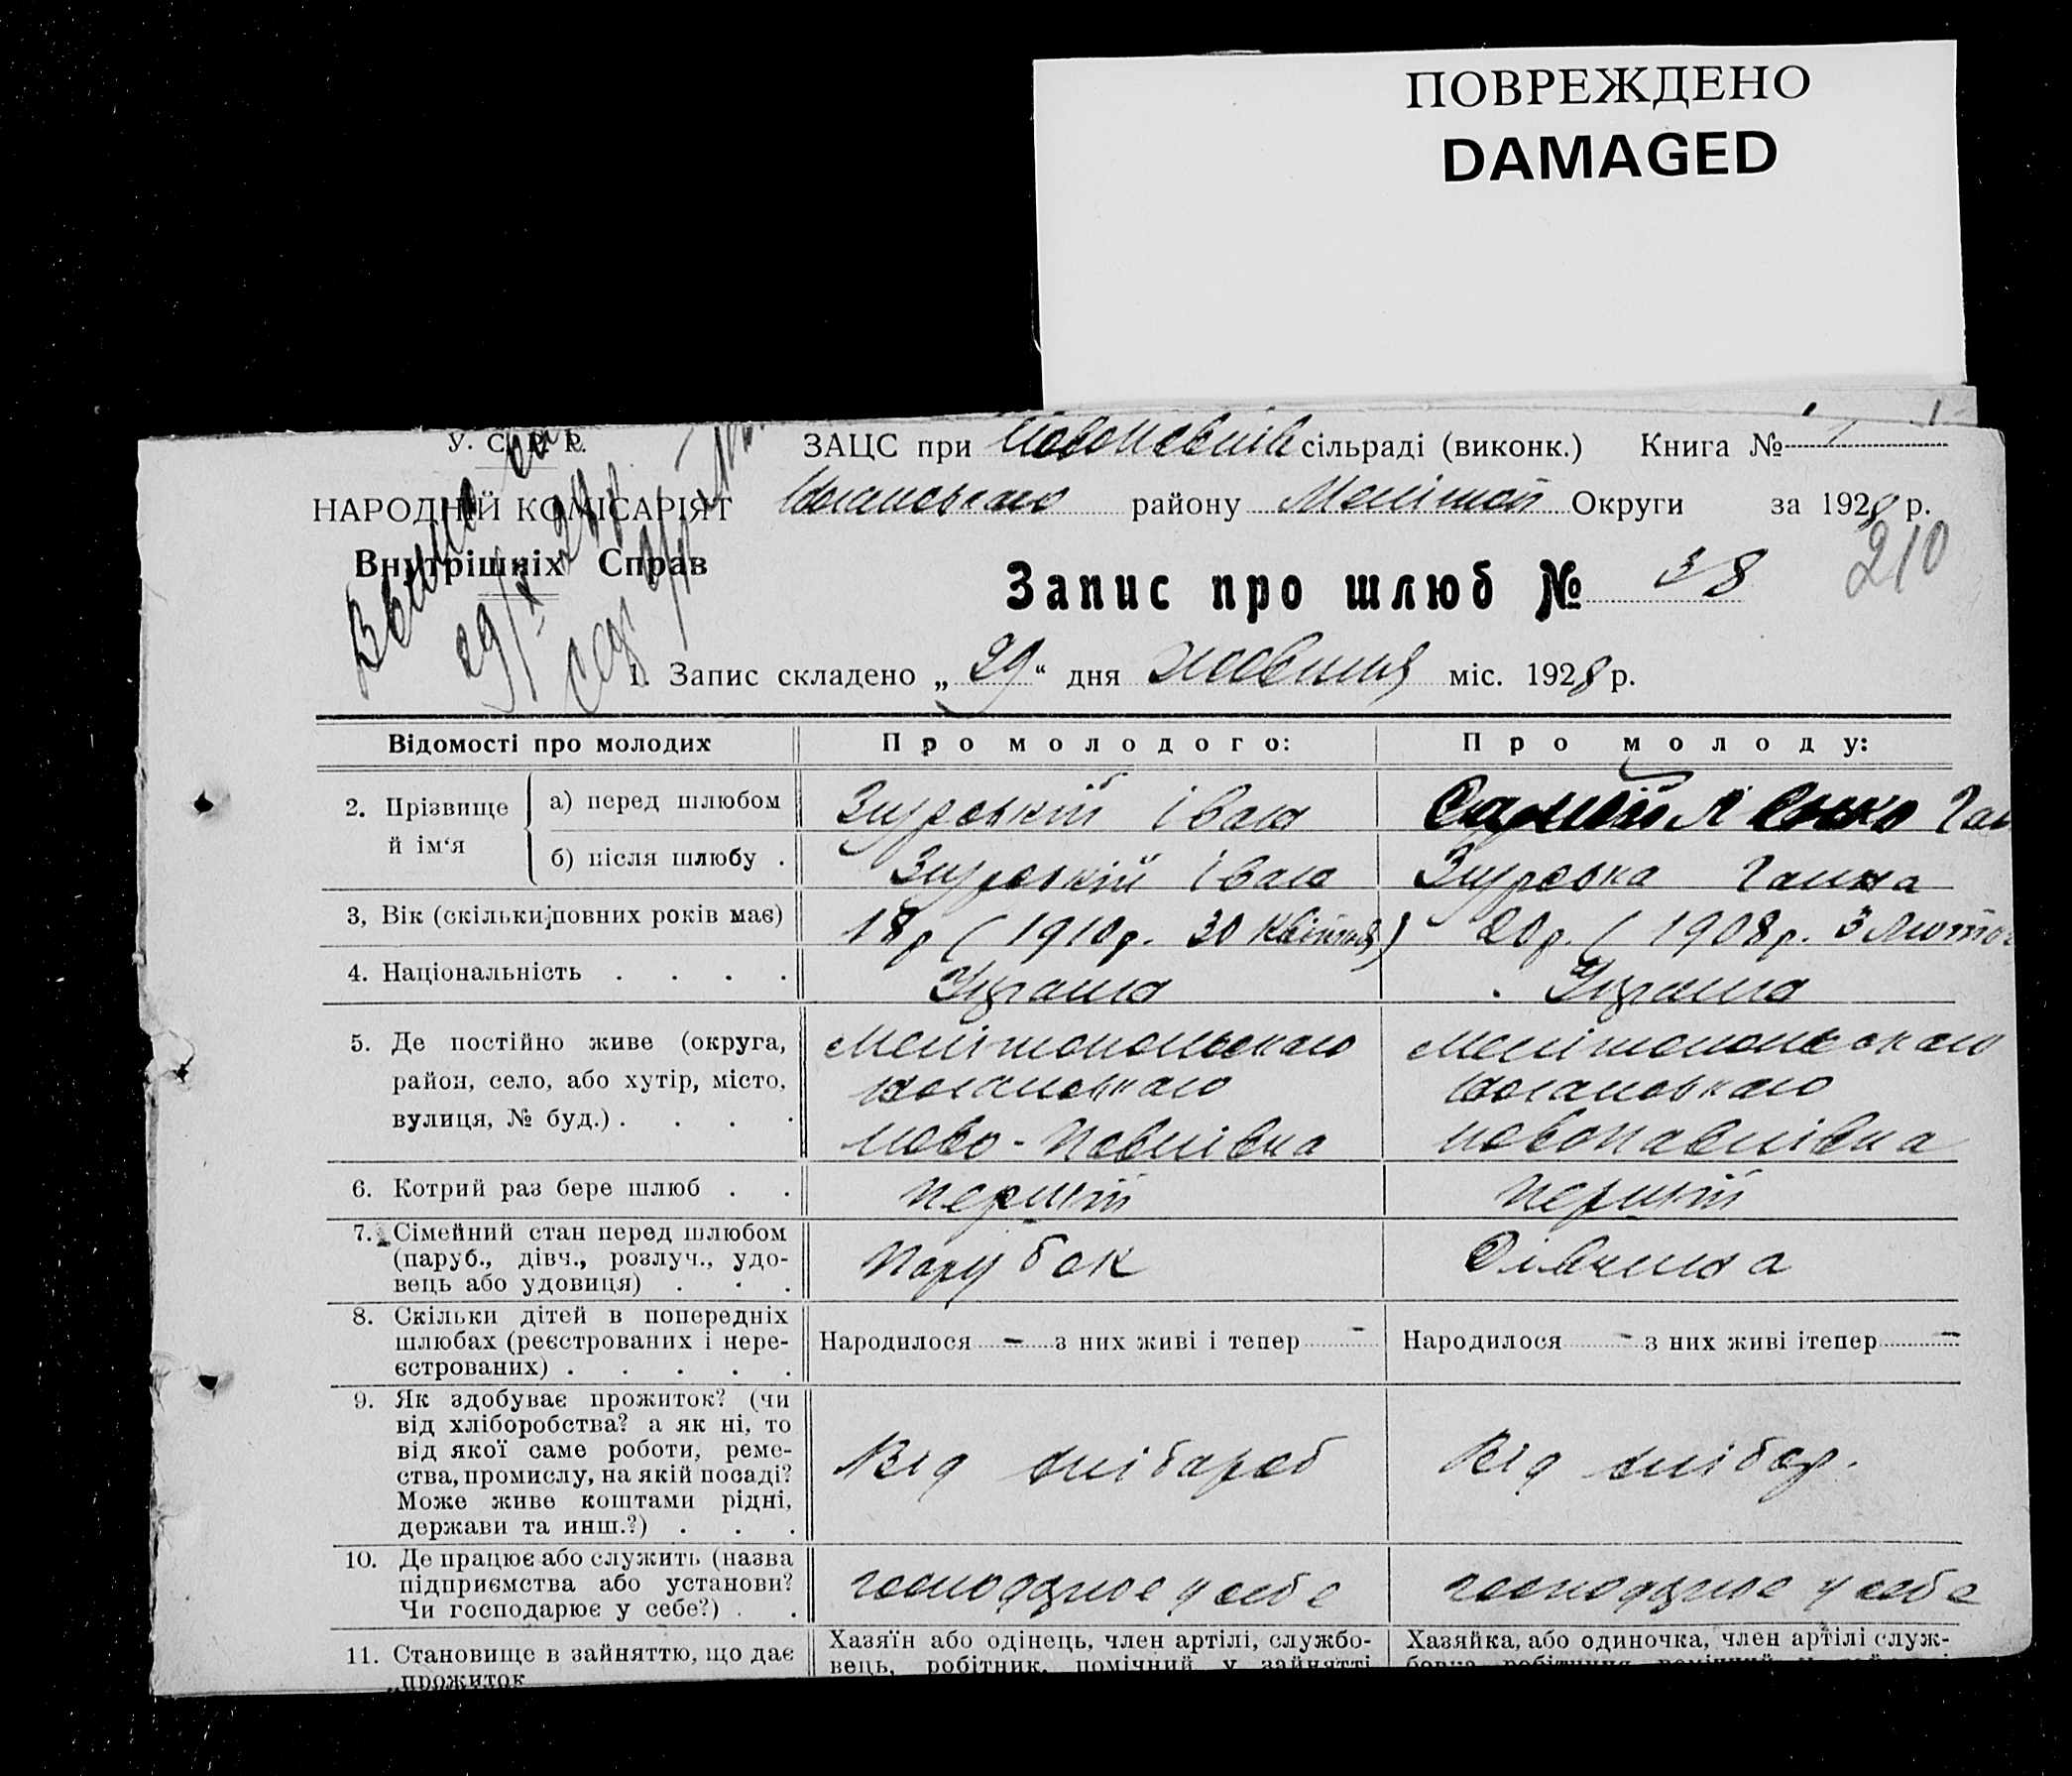 ПОВРЕЖДЕНО
DAMAGED
У. С. Р. Р.
ЗАЦС при Новопавлівс сільраді (виконк.) Книга № 1
НАРОДНІЙ КОМІСАРІЯТ
району Мелітоп Округи за 1928 р.
Внутрішніх Справ
Запис про шлюб № 38
210
1. Запис складено „ 29 “ дня жовтня міс. 1928 р.
Відомості про молодих Про молодого: Про молоду:
2. Прізвище й ім‘я
а) перед шлюбом Іван
б) після шлюбу . Іван Ганна
3, Вік (скільки повних років має) 18 р ( 1910 р. 30 квітня ) 20 р. ( 1908 р. 3
4. Національність . . . .
5. Де постійно живе (округа,
район, село, або хутір, місто,
вулиця, № буд.) . . . .
Мелітопольського
Ново-Павлівка
Мелітопольського
Новопавлівка
6. Котрий раз бере шлюб . . перший перший
7. Сімейний стан перед шлюбом
(паруб., дівч., розлуч., удо-
вець або удовиця) . . .
Парубок Дівчина
8. Скільки дітей в попередніх
шлюбах (реєстрованих і нере-
єстрованих) . . . . .
Народилося – з них живі і тепер – Народилося – з них живі ітепер –
9. Як здобуває прожиток? (чи
від хліборобства? а як ні, то
від якої саме роботи, реме-
ства, промислу, на якій посаді?
Може живе коштами рідні,
держави та инш.?) . . .
Від хлібароб Від хлібор.
10. Де працює або служить (назва
підприємства або установи?
Чи господарює у себе?) . .
у себе у себе
11. Становище в зайняттю, що дає
прожиток
Хазяїн або одінець, член артілі, службо-
вець, робітник, помічний у зайнятті
Хазяйка, або одиночка, член артілі служ-